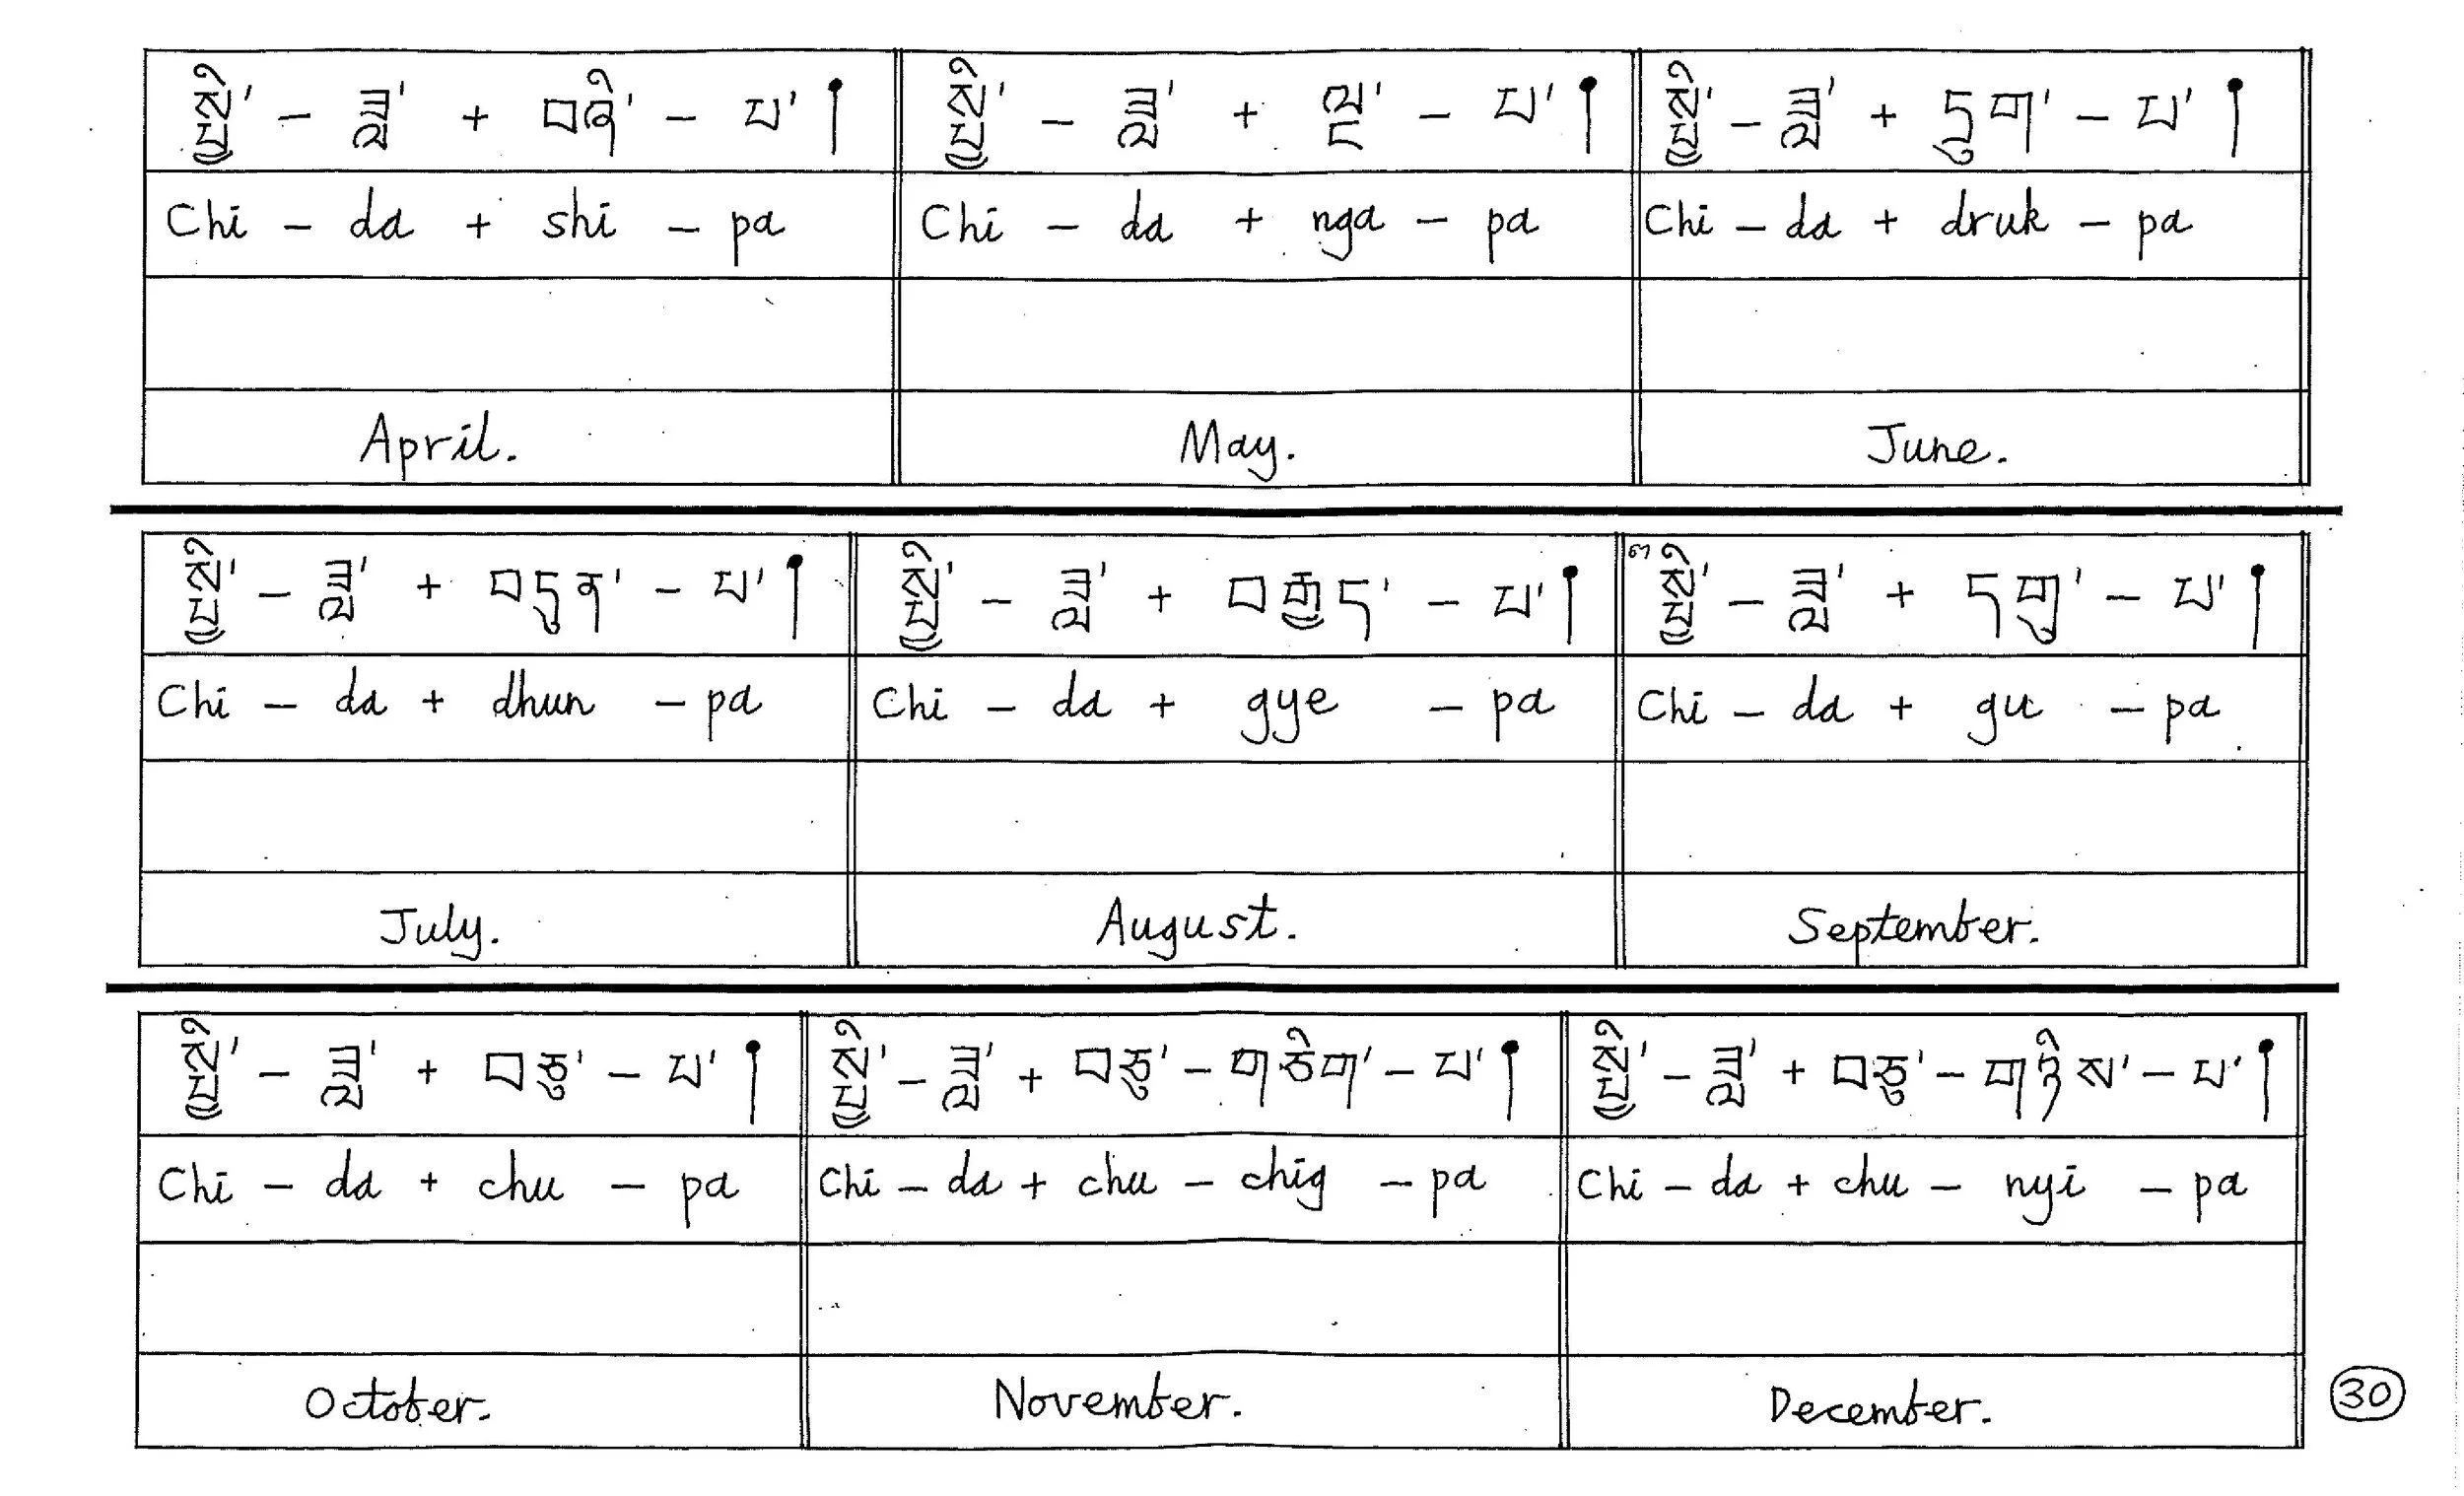 སྤྱི་ - ཟླ་ + བཞི་ - པ་ །
སྤྱི་ - ཟླ་ + ལྔ་ - པ་ །
སྤྱི་ - ཟླ་ + དྲུག་ - པ་ །
Chi - da + shi - pa
Chi - da + nga - pa
Chi - da + druk - pa
April.
May.
June.
སྤྱི་ - ཟླ་ + བདུན་ - པ་ །
སྤྱི་ - ཟླ་ + བརྒྱད་ - པ་ །
སྤྱི་ - ཟླ་ + དགུ་ - པ་ །
Chi - da + dhun - pa
Chi - da + gye - pa
Chi - da + gu - pa
July.
August.
September.
སྤྱི་ - ཟླ་ + བཅུ་ - པ་ །
སྤྱི་ - ཟླ་ + བཅུ་ - གཅིག་ - པ་ །
སྤྱི་ - ཟླ་ + བཅུ་ - གཉིས་ - པ་ །
Chi - da + chu - pa
Chi - da + chu - chig - pa
Chi - da + chu - nyi - pa
October.
November.
December.
30